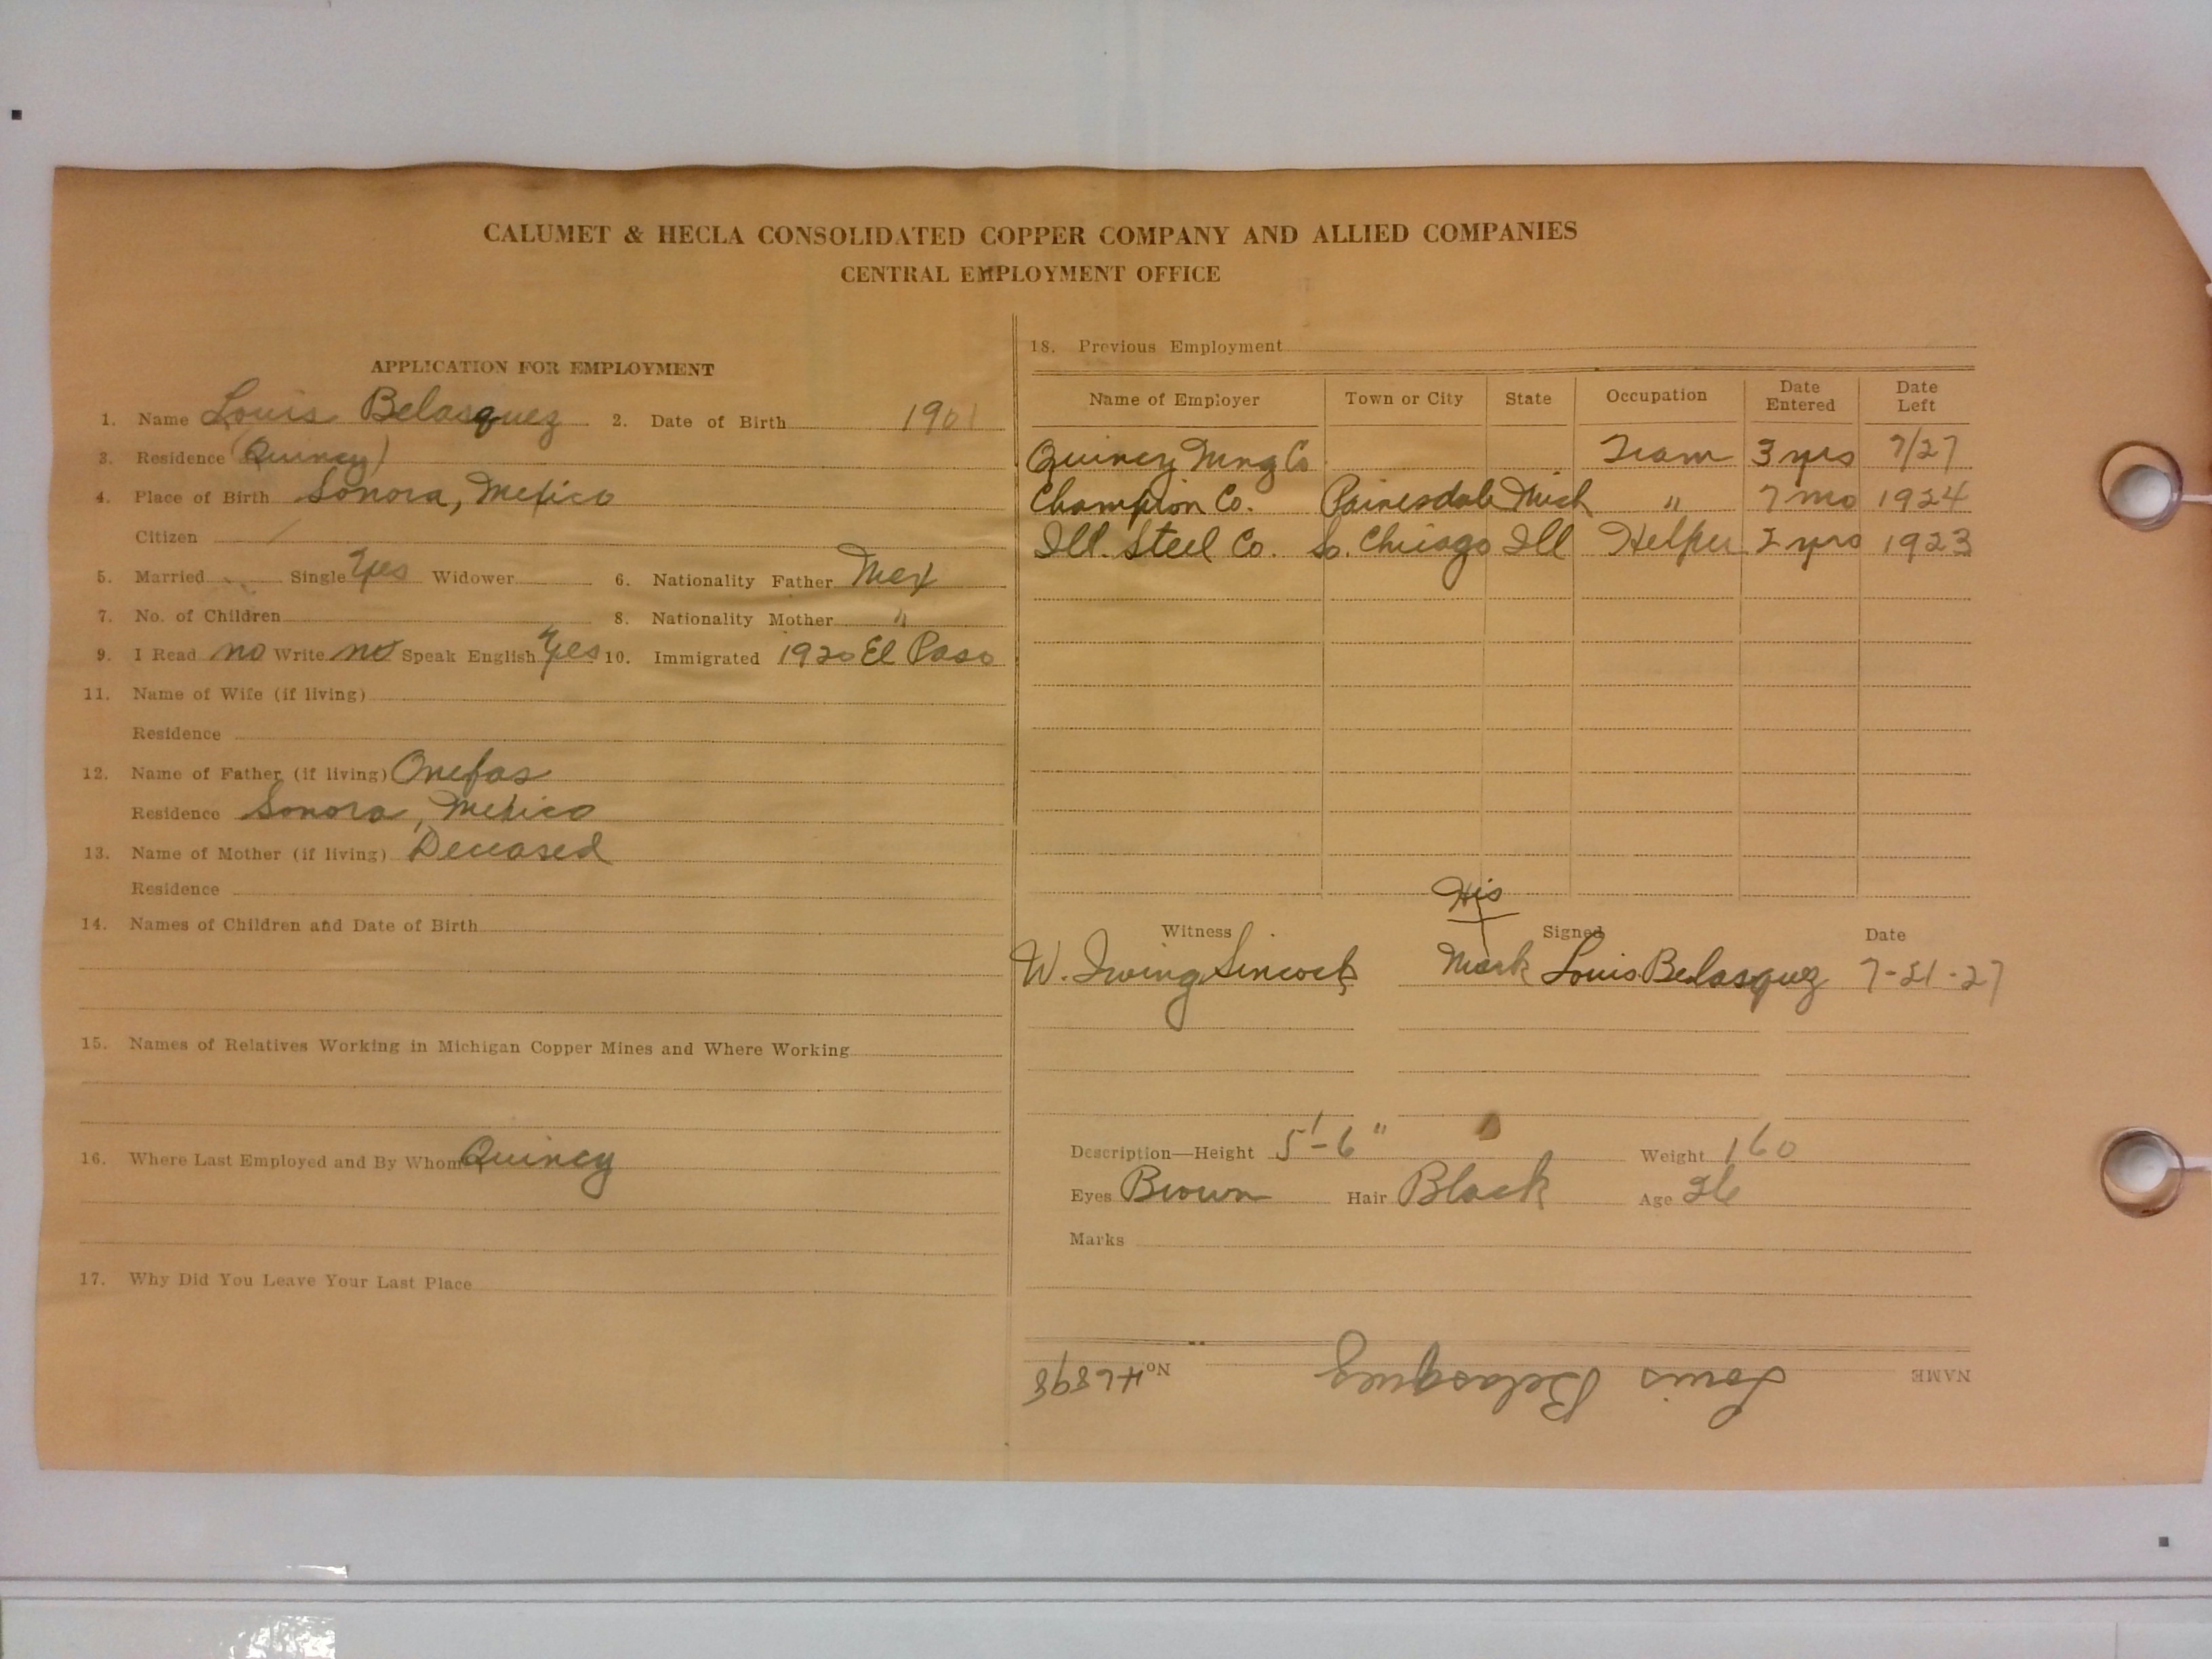 CALUMET & HECLA CONSOLIDATED COPPER COMPANY AND ALLIED COMPANIES
CENTRAL EMPLOYMENT OFFICE
APPLICATION FOR EMPLOYMENT
1. Name Louis Belasquez 2. Date of Birth 1901
3. Residence (Quincy)
4. Place of Birth Sonora, Mexico
Citizen /
5. Married Single Yes Widower 6. Nationality Father Mex
7. No. of Children 8. Nationality Mother "
9. I Read no Write no Speak English Yes 10. Immigrated 1920 El Paso
11. Name of Wife (if living)
Residence
12. Name of Father (if living) Onefas
Residence Sonora, Mexico
13. Name of Mother (if living) Deceased
Residence
14. Names of Children and Date of Birth
15. Names of Relatives Working in Michigan Copper Mines and Where Working
16. Where Last Employed and By Whom Quincy
17. Why Did You Leave Your Last Place
18. Previous Employment
Name of Employer Town or City State Occupation Date Entered Date Left
Quincy Mng Co Tram 3 yrs 7/27
Champion Co. Painesdale Mich " 7 mo 1924
Ill. Steel Co. So. Chicago Ill Helper 2 yrs 1923
His
Witness Signed Date
W. Irving Sincock Mark Louis Belasquez 7-21-27
Description—Height 5'-6" Weight 160
Eyes Brown Hair Black Age 26
Marks
NAME Louis Belasquez No. 46898